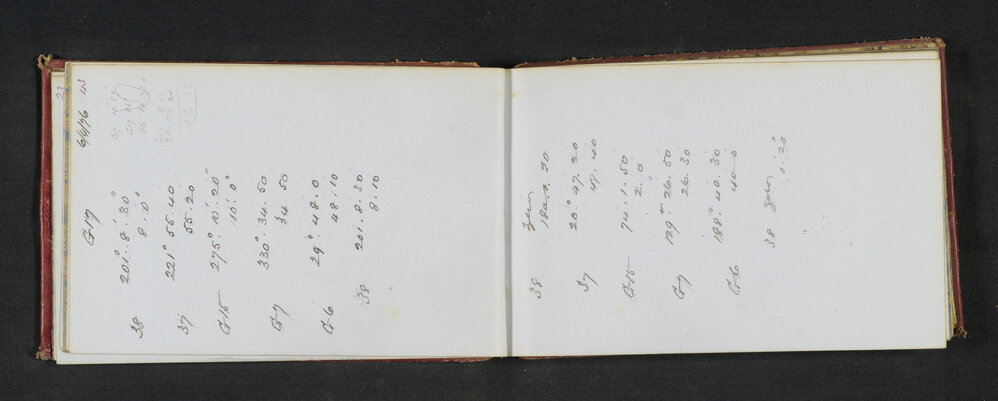 G17
6/6/76
23
43
38 201° 8' 30"
8' 0"
37 221° 55' 40
55. 20
G15 275° 10' 20"
10' 0"
G7 330° 34. 50
34. 50
G6 29° 48. 0
48. 10
38 201. 8. 30
8. 10
38
37 20° 47. 20
47. 40
G15 74. 1. 50
2. 0
G7 129° 26. 50
26. 30
G6 188° 40. 30
40
38
0. 20"